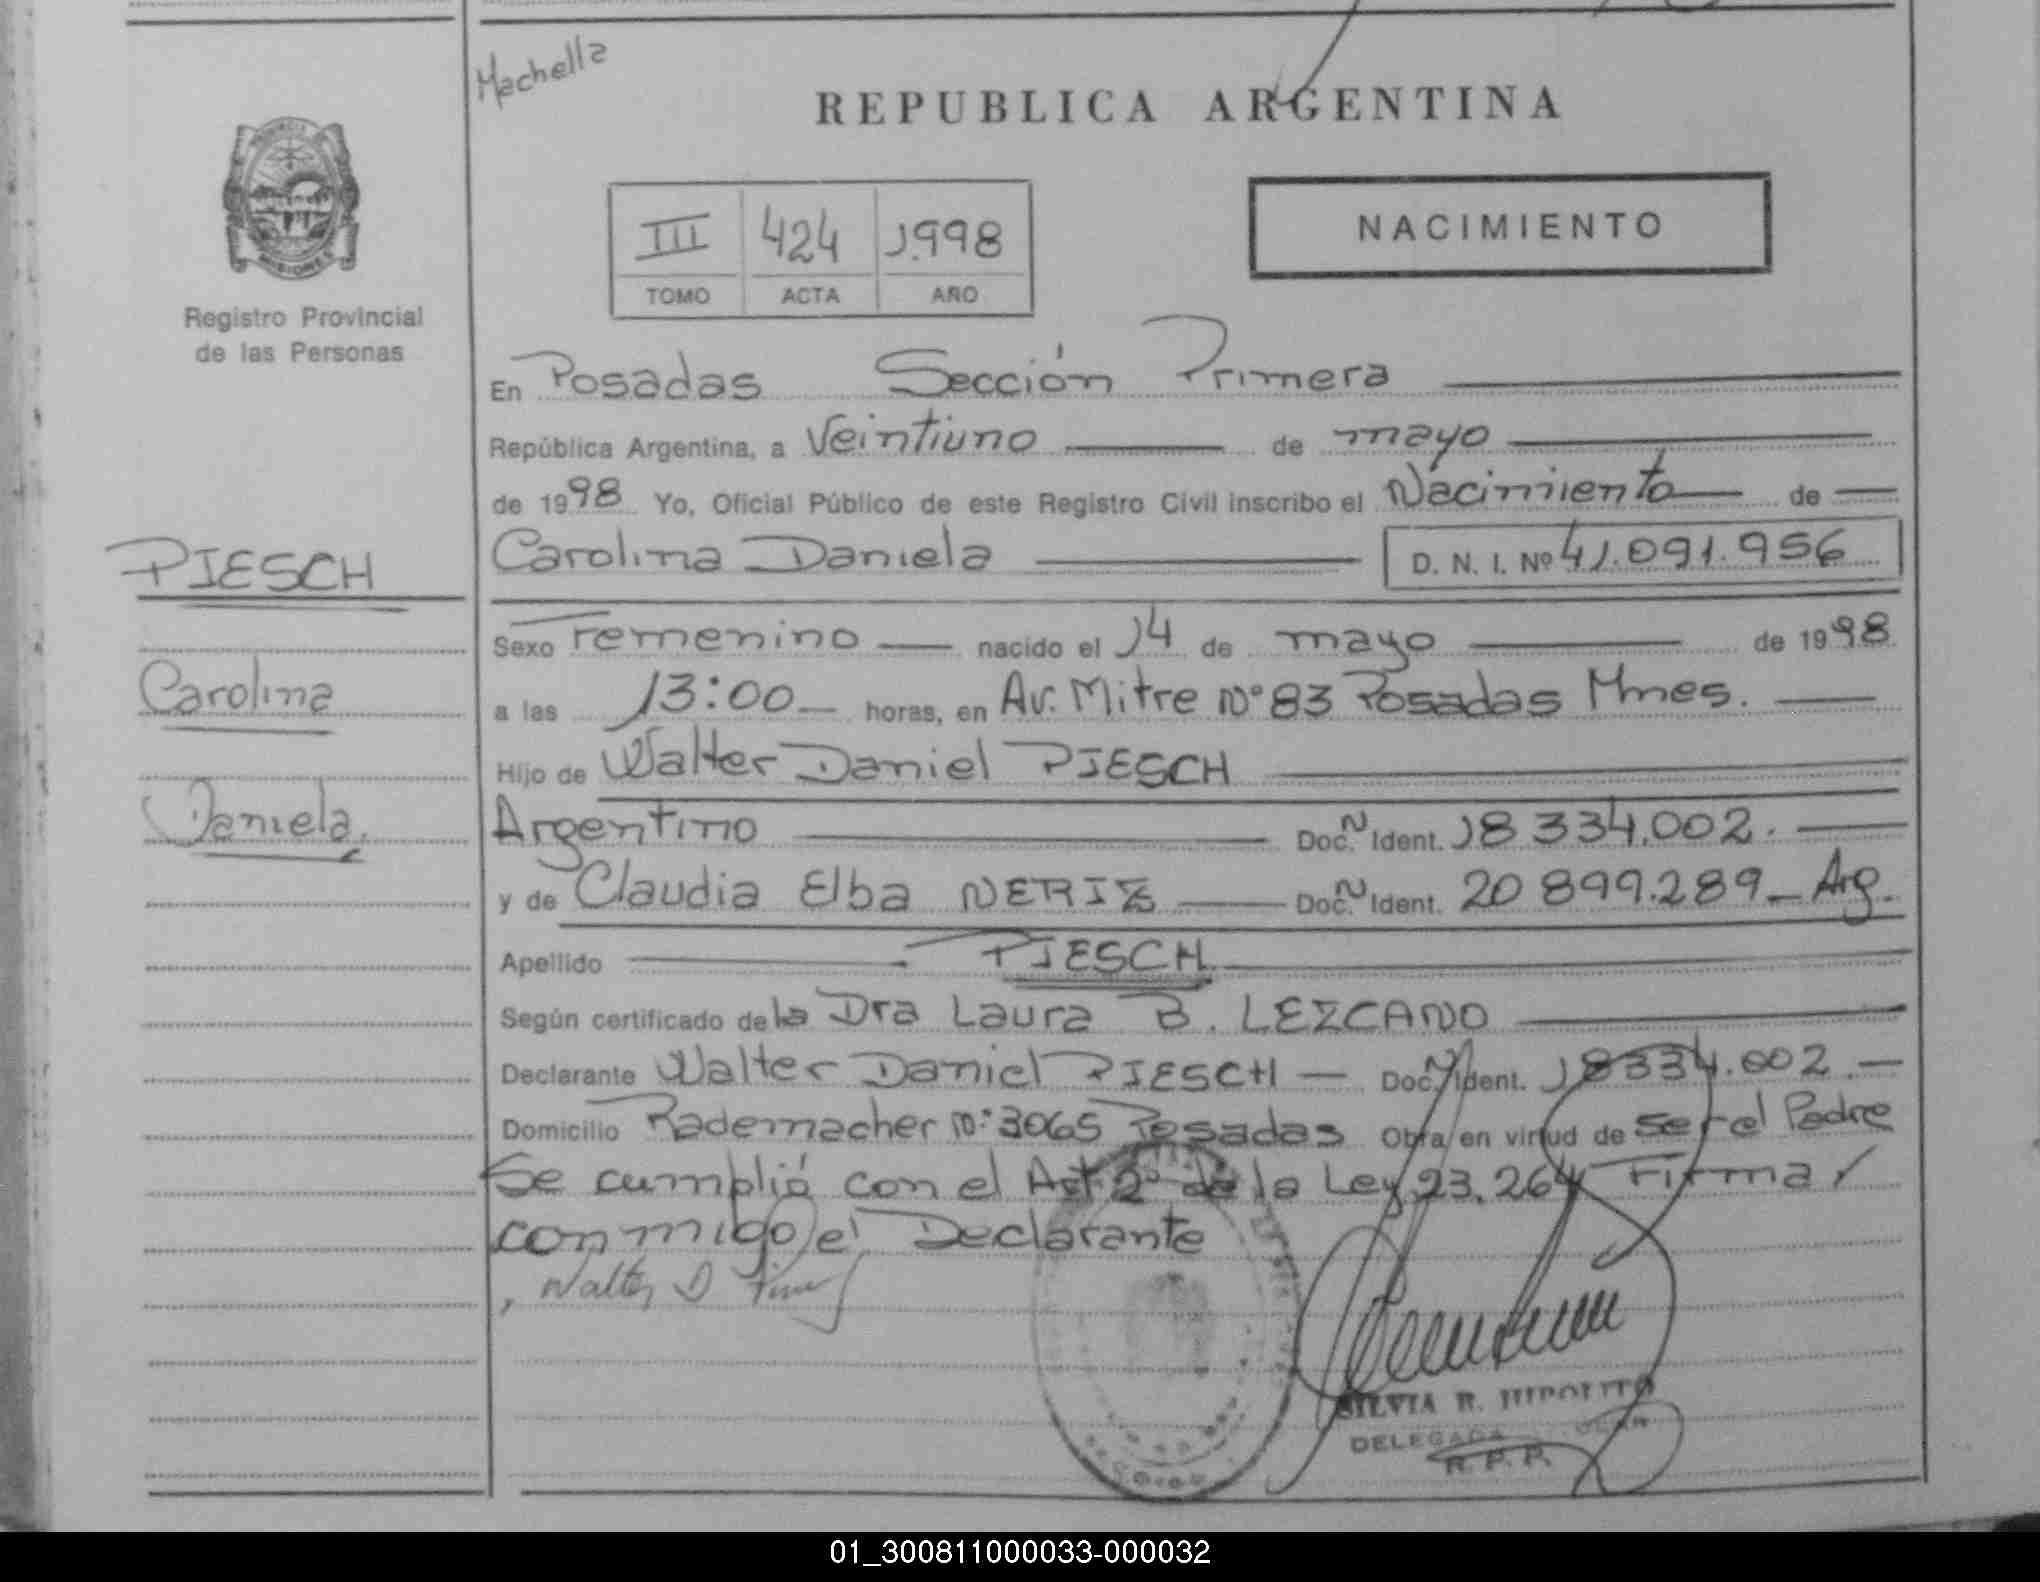 Machella
REPUBLICA ARGENTINA
NACIMIENTO
III 424 1.998
TOMO ACTA AÑO
MISIONES
Registro Provincial
de las Personas
En Posadas Sección Primera
República Argentina, a Veintiuno de mayo
de 1998 Yo, Oficial Público de este Registro Civil inscribo el Nacimiento de
PIESCH
Carolina Daniela D. N. I. Nº 41.091.956
Sexo Femenino nacido el 14 de mayo de 1998
Carolina
a las 13:00 horas, en Av. Mitre Nº 83 Posadas Mnes.
Hijo de Walter Daniel PIESCH
Daniela.
Argentino Doc. N Ident. 18 334.002.
y de Claudia Elba NERIZ Doc. N Ident. 20 899.289 Arg.
Apellido PIESCH
Según certificado de la Dra Laura B. LEZCANO
Declarante Walter Daniel PIESCH Doc. N Ident. 18334.002.
Domicilio Rademacher Nº 3065 Posadas Obra en virtud de ser el Padre
Se cumplió con el Art 2º de la Ley 23.264 Firma
conmigo el Declarante
Walter D
SILVIA R. HIPOLITO
DELEGADA
R. P. P.
01_300811000033-000032